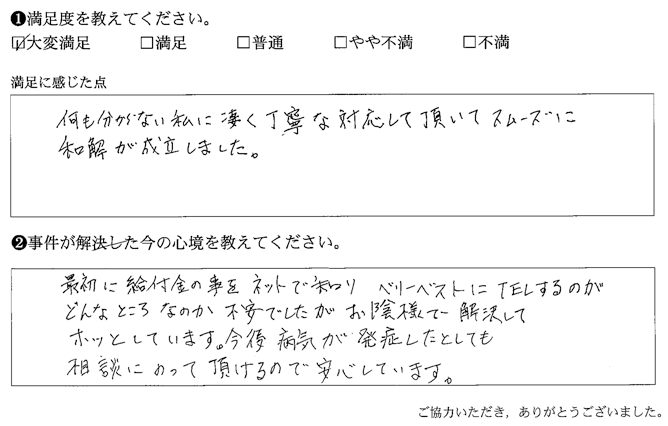 ❶満足度を教えてください。
☑大変満足 □満足 □普通 □やや不満 □不満
満足に感じた点
何も分からない私に凄く丁寧な対応して頂いてスムーズに
和解が成立しました。
❷事件が解決した今の心境を教えてください。
最初に給付金の事をネットで知り ベリーベストにTELするのが
どんなところなのか 不安でしたが お陰様で 解決して
ホッとしています。今後 病気が 発症したとしても
相談にのって頂けるので安心しています。
ご協力いただき，ありがとうございました。